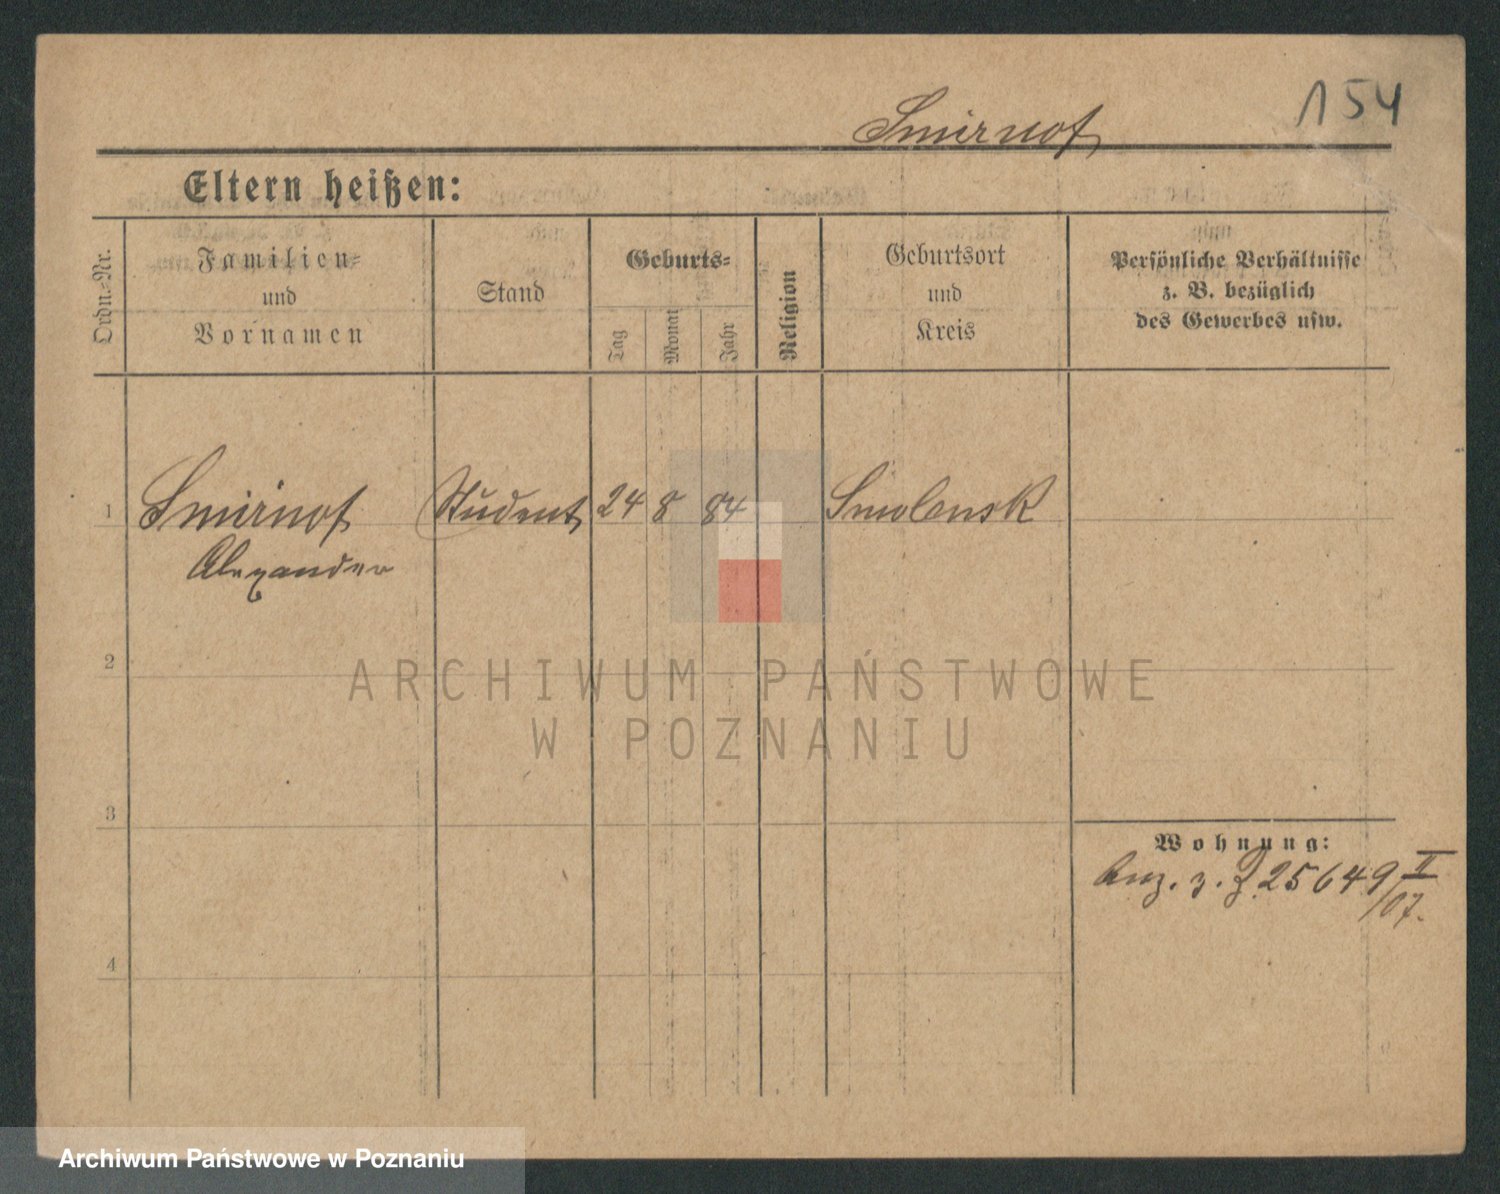 154
Smirnof
Eltern heißen:
Ordn.-Nr.
Familien-
und
Vornamen
Stand
Geburts-
Tag
Monat
Jahr
Religion
Geburtsort
und
Kreis
Persönliche Verhältnisse
z. B. bezüglich
des Gewerbes usw.
1 Smirnof Student 24 8 84 Smolensk
Alexander
2
ARCHIWUM PAŃSTWOWE
W POZNANIU
3
Wohnung:
z. 25649 II
/07.
4
Archiwum Państwowe w Poznaniu